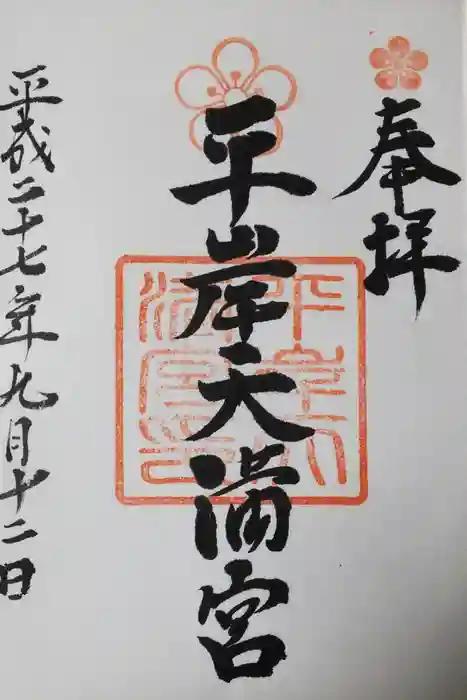 奉拝
平岸天満宮
平成二十七年九月十二日